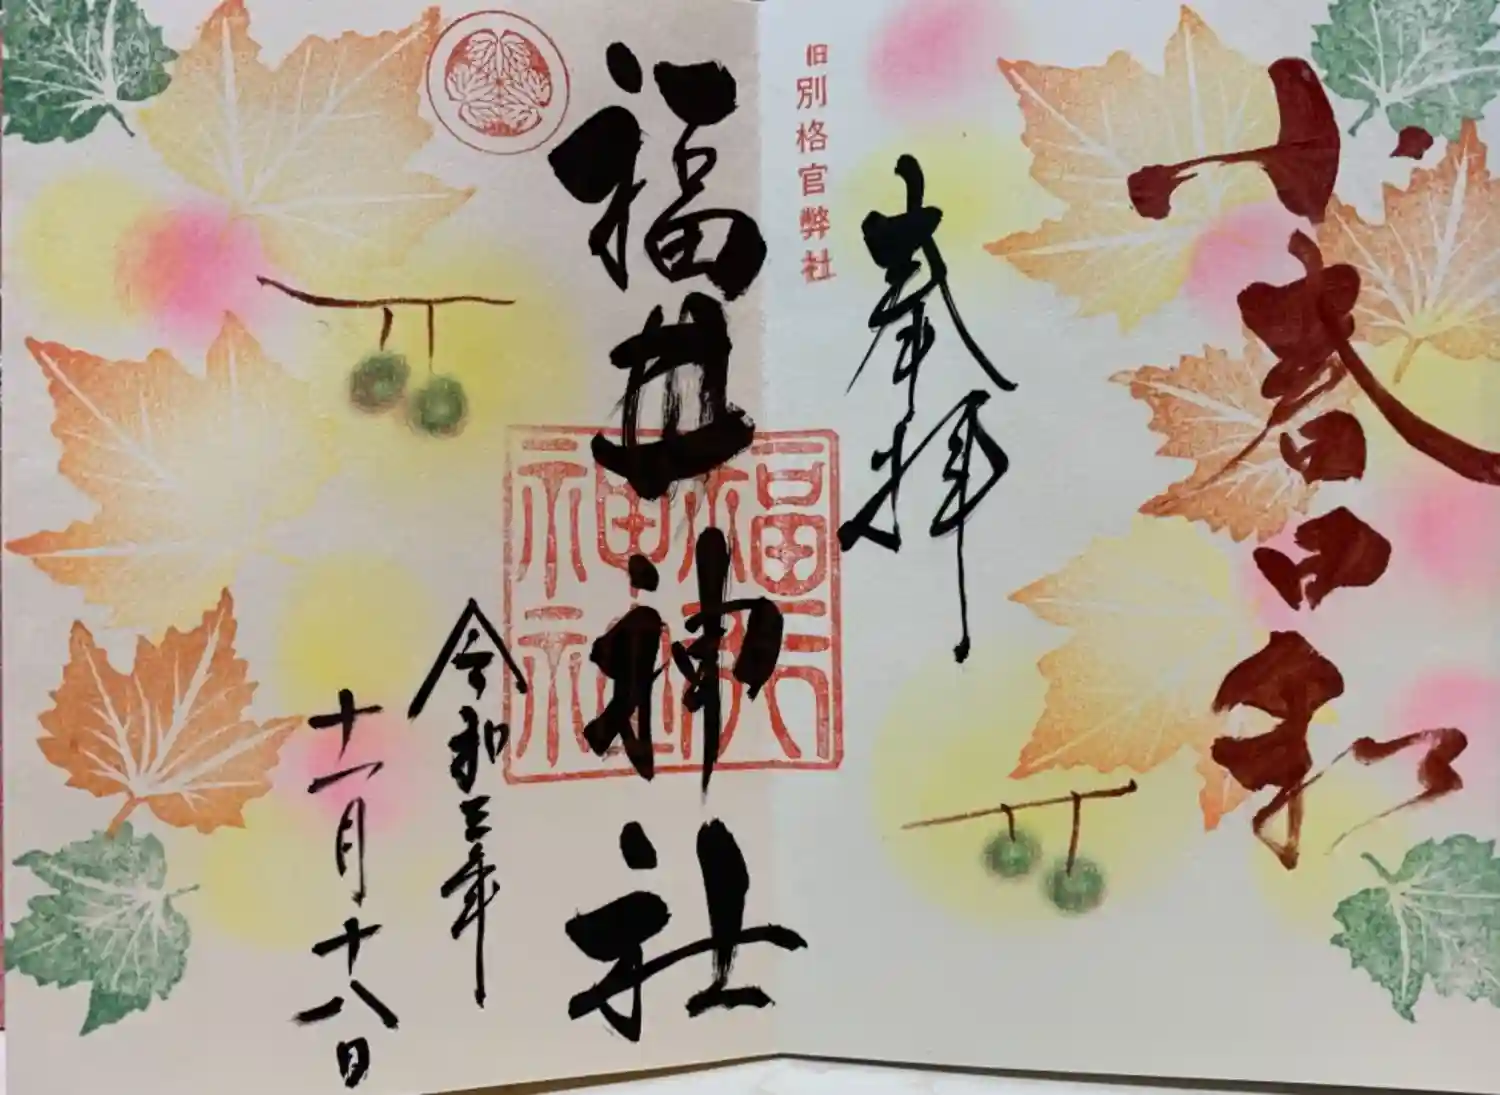 小春日和
奉拝
旧別格官弊社
福井神社
福井
神社
令和三年
十一月十八日